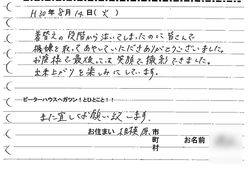 H30年8月14日(火)
着替えの段階から泣いてしまったのに皆さんで
機嫌を取ってあやしていただきありがとうございました。
お陰様で最後には笑顔で撮影できました。
出来上がりを楽しみにしています。
ピーターハウスへガツン！とひとこと！！
また宜しくお願い致します。
お住まい 相模原 市
町
村
お名前